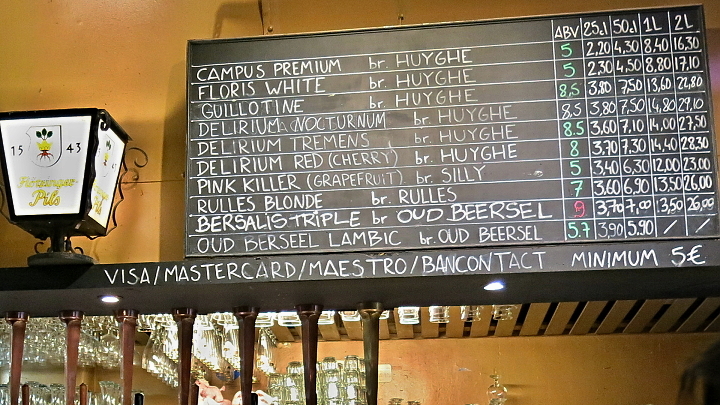 ABV 25cl 50cl 1L 2L
CAMPUS PREMIUM br. HUYGHE 5 2,20 4,30 8,40 16,30
FLORIS WHITE br. HUYGHE 5 2,30 4,50 8,80 17,10
GUILLOTINE br. HUYGHE 8,5 3,80 7,50 13,60 22,80
DELIRIUM NOCTURNUM br. HUYGHE 8,5 3,80 7,50 14,80 29,10
DELIRIUM TREMENS br. HUYGHE 8.5 3,60 7,10 14,00 27,50
DELIRIUM RED (CHERRY) br. HUYGHE 8 3,70 7,30 14,40 28,30
PINK KILLER (GRAPEFRUIT) br. SILLY 5 3,40 6,30 12,00 23,00
RULLES BLONDE br. RULLES 7 3,60 6,90 13,50 26,00
BERSALIS TRIPLE br OUD BEERSEL 9 3,70 7,00 13,50 26,00
OUD BERSEEL LAMBIC br. OUD BEERSEL 5.7 3,90 5.90 / /
VISA/MASTERCARD/MAESTRO/BANCONTACT MINIMUM 5€
15 43
Pils